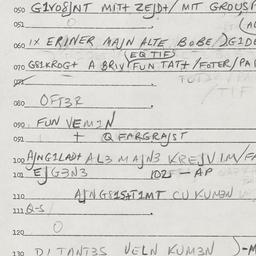 050 G1VO8JNT MIT+ ZEJD+/ MIT GROUS
051
060 IX ERINER MAJN ALTE BOBE
(EQ TIF)
070 GE1KROG+ A BRIV FUN TAT+/FOTER/PA
080 OFT3R
090 FUN VEM3N
091 + Q FARGRAJST
100 AJNG1LAD+ AL3 MAJN3 KREJVIM/FA
101 EJG3N3 102 - AP
110 AJNG81S+T1MT CU KUM3N
111 Q-S
120
130 DI TANT3S VELN KUM3N )-M